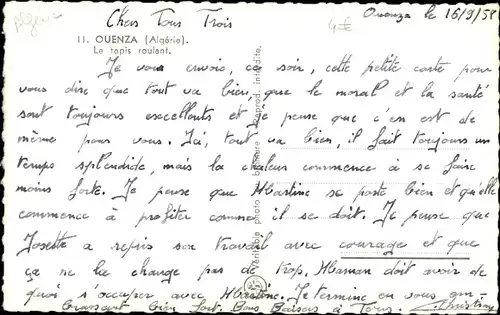 algerie
Chers Tous Trois
4€
Ouenza le 16/9/58
11. OUENZA (Algérie).
Le tapis roulant.
Je vous envoie, ce soir, cette petite carte pour
vous dire que tout va bien, que le moral et la santé
sont toujours excellents et je pense que c'en est de
même pour vous. Ici, tout va bien, il fait toujours un
temps splendide, mais la chaleur commence à se faire
moins forte. Je pense que Martine se porte bien et qu'elle
commence à profiter comme il se doit. Je pense que
Josette a repris son travail avec courage et que
ça ne la change pas de trop, Maman doit avoir de
quoi s'occuper avec Martine. Je termine en vous em-
brassant bien fort. Bons Baisers à Tous. Christian
Véritable photo au bromure - Reprod. interdite.